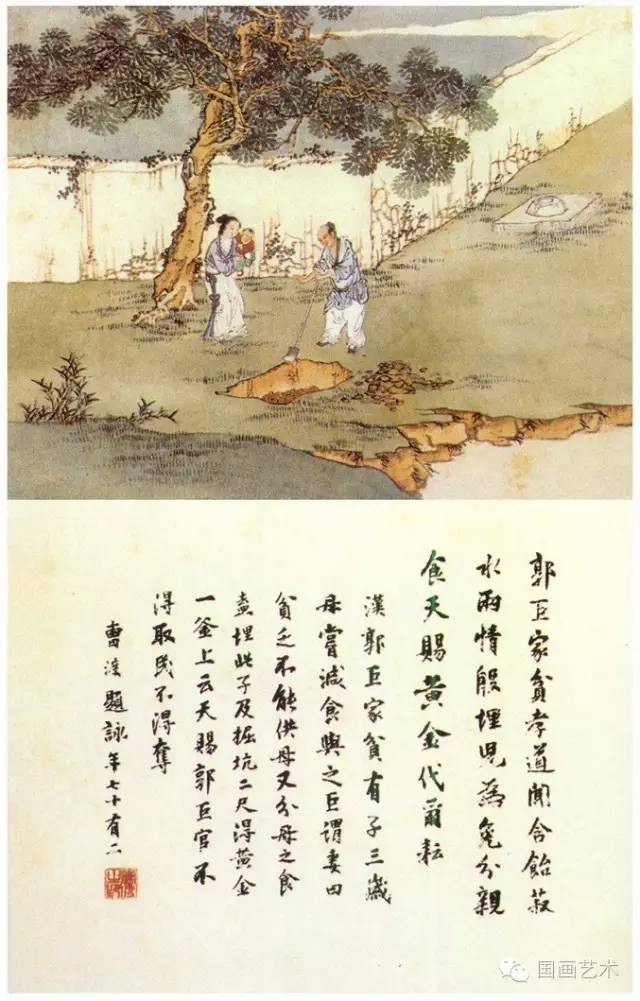 郭巨家貧孝道聞含飴菽
水兩情殷埋兒為免分親
食天賜黃金代爾耘
漢郭巨家貧有子三歲
母嘗減食與之巨謂妻曰
貧乏不能供母又分母之食
盍埋此子及掘坑二尺得黃金
一釜上云天賜郭巨官不
得取民不得奪
曹題詠年七十有二
国画艺术